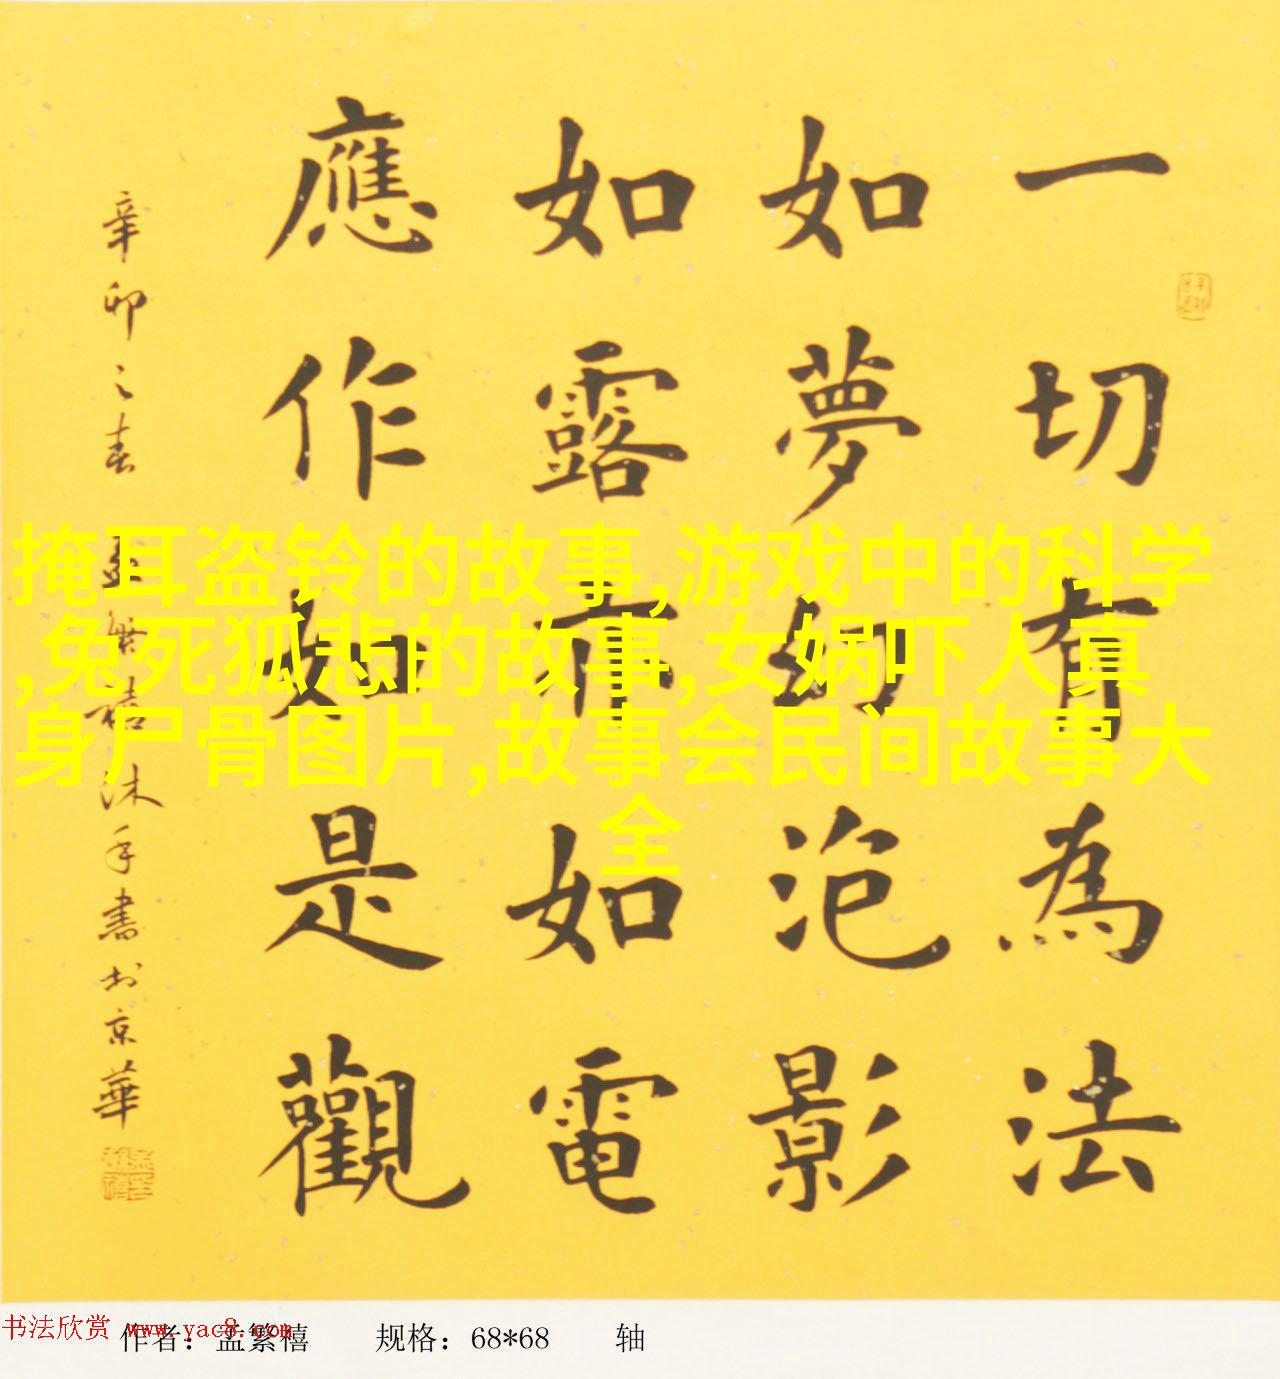 一切有為法
如夢幻泡影
如露亦如電
應作如是觀
辛卯之春孟繁禧沐手書於京華
掩耳盗铃的故事,游戏中的科学
,兔死狐悲的故事,女娲吓人真
身尸骨图片,故事会民间故事大
全
书法欣赏 www.yac8.com
作者：孟繁禧 规格：68*68 轴